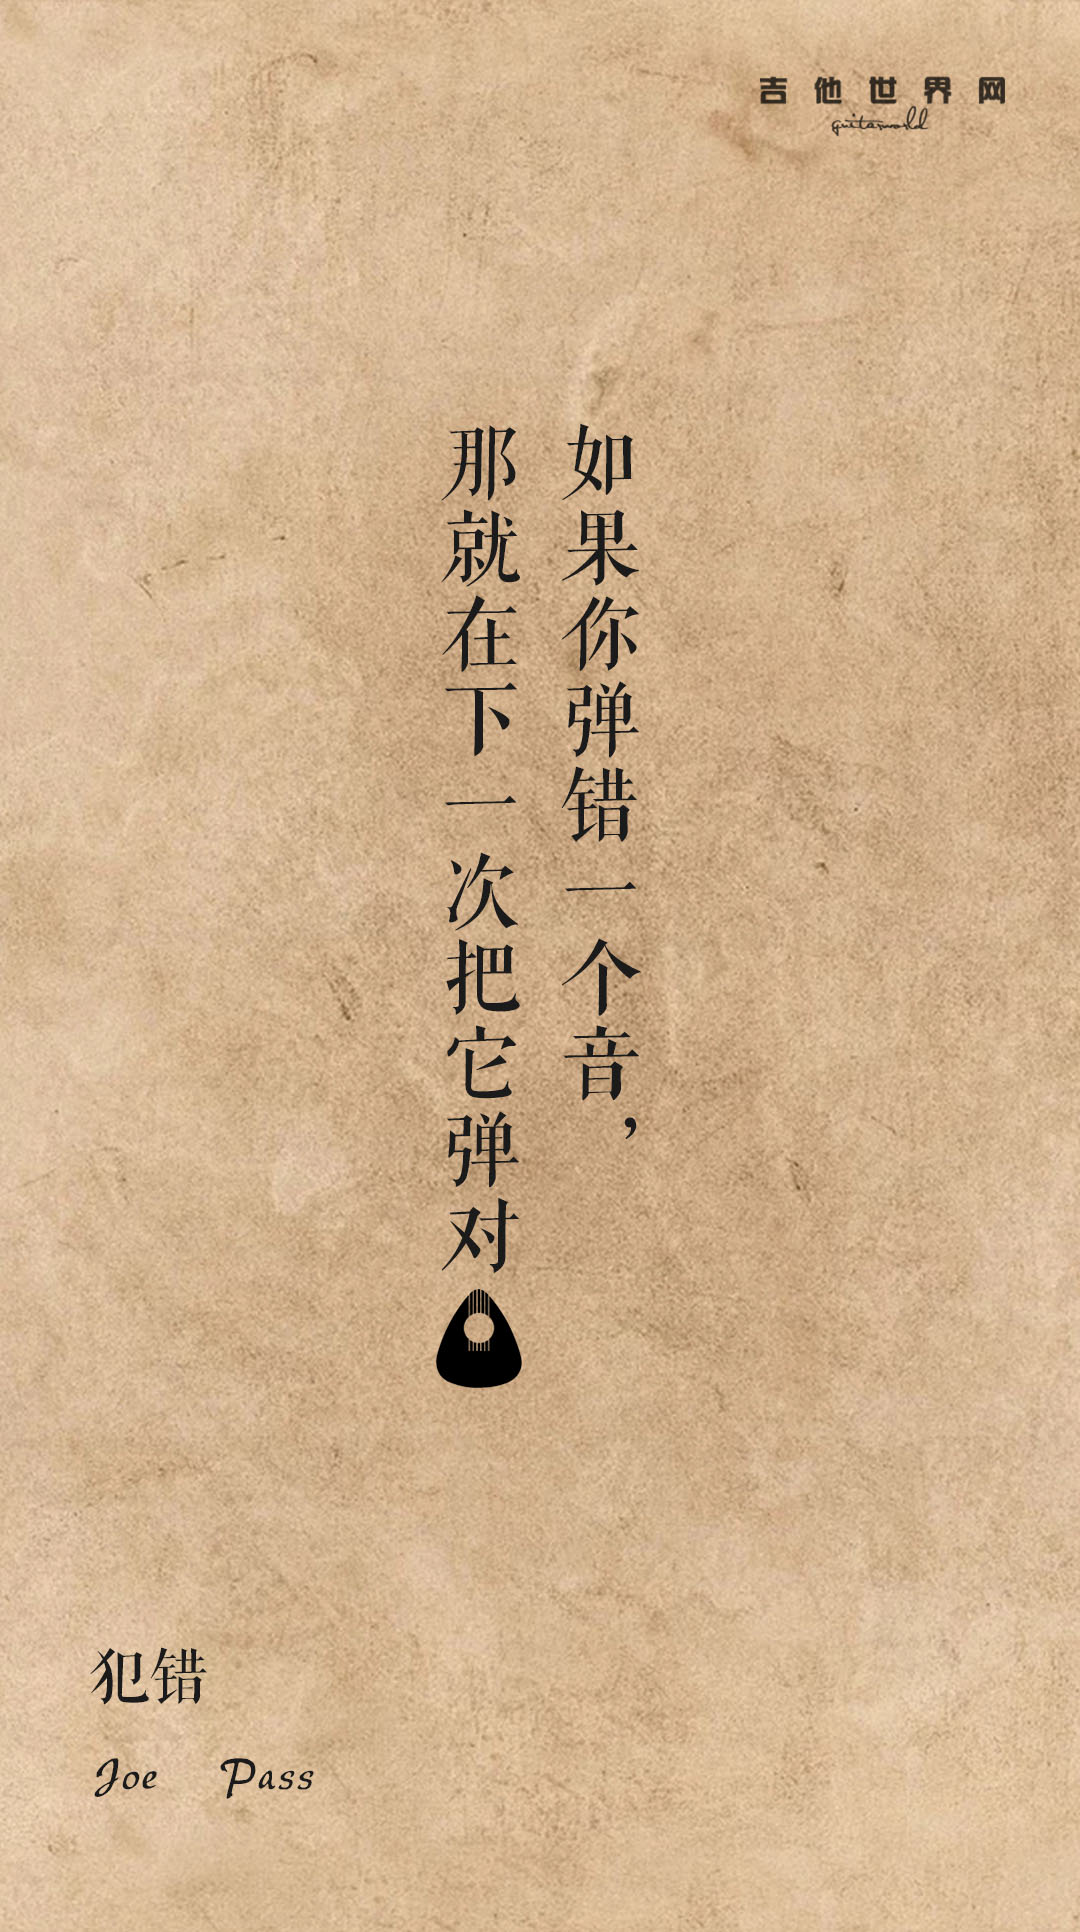 吉他世界网
guitarworld
如果你弹错一个音，
那就在下一次把它弹对
犯错
Joe Pass